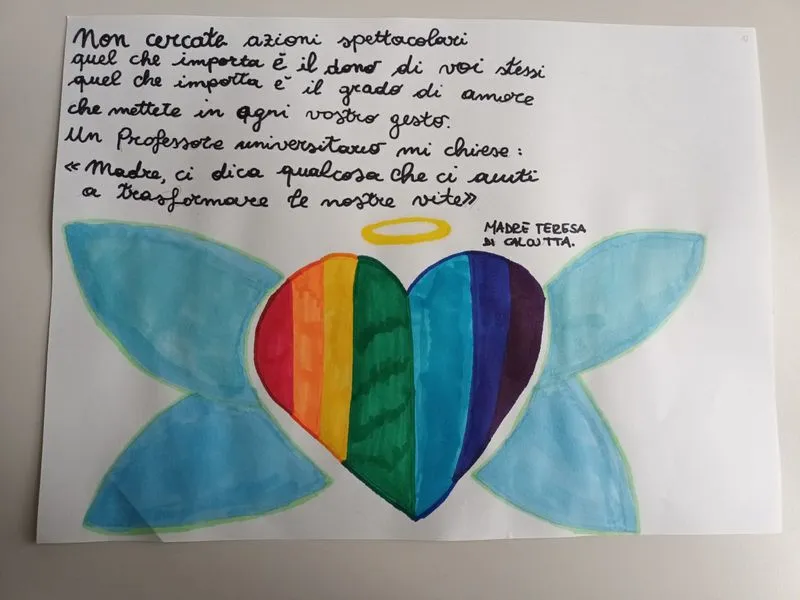 Non cercate azioni spettacolari
quel che importa è il dono di voi stessi
quel che importa è il grado di amore
che mettete in ogni vostro gesto.
Un Professore universitario mi chiese:
«Madre, ci dica qualcosa che ci aiuti
a trasformare le nostre vite»
MADRE TERESA
DI CALCUTTA.